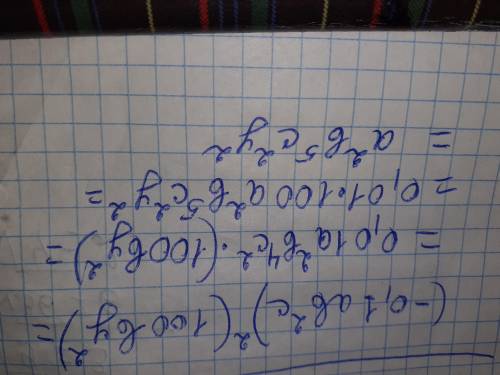 (-0,1ab²c)²(100by²)=
=0,01a²b⁴c²·(100by²)=
=0,01·100a²b⁵c²y²=
= a²b⁵c²y²